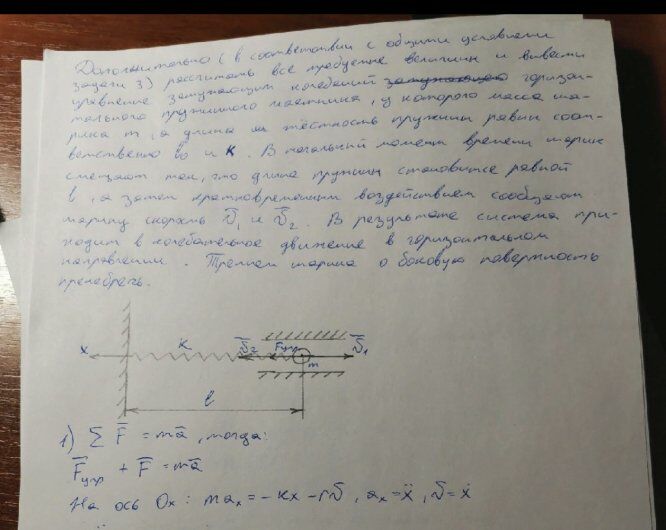 Дополнительно (в соответствии с общими условиями
задачи 3) рассчитать все требуемые величины и вывести
уравнение затухающих колебаний горизон-
тального пружинного маятника, у которого масса ша-
рика m, а длина и жёсткость пружины равны соот-
ветственно l₀ и K. В начальный момент времени шарик
смещают так, что длина пружины становится равной
l, а затем кратковременным воздействием сообщают
шарику скорость v̄₁ и v̄₂. В результате система при-
ходит в колебательное движение в горизонтальном
направлении. Трением шарика о боковую поверхность
пренебречь.
x K v̄₂ F̄упр m v̄₁
l
1) Σ F̄ = mā, тогда:
F̄упр + F̄ = mā
На ось Ox: maₓ = -кx - rv̄, aₓ = ẍ, v̄ = ẋ